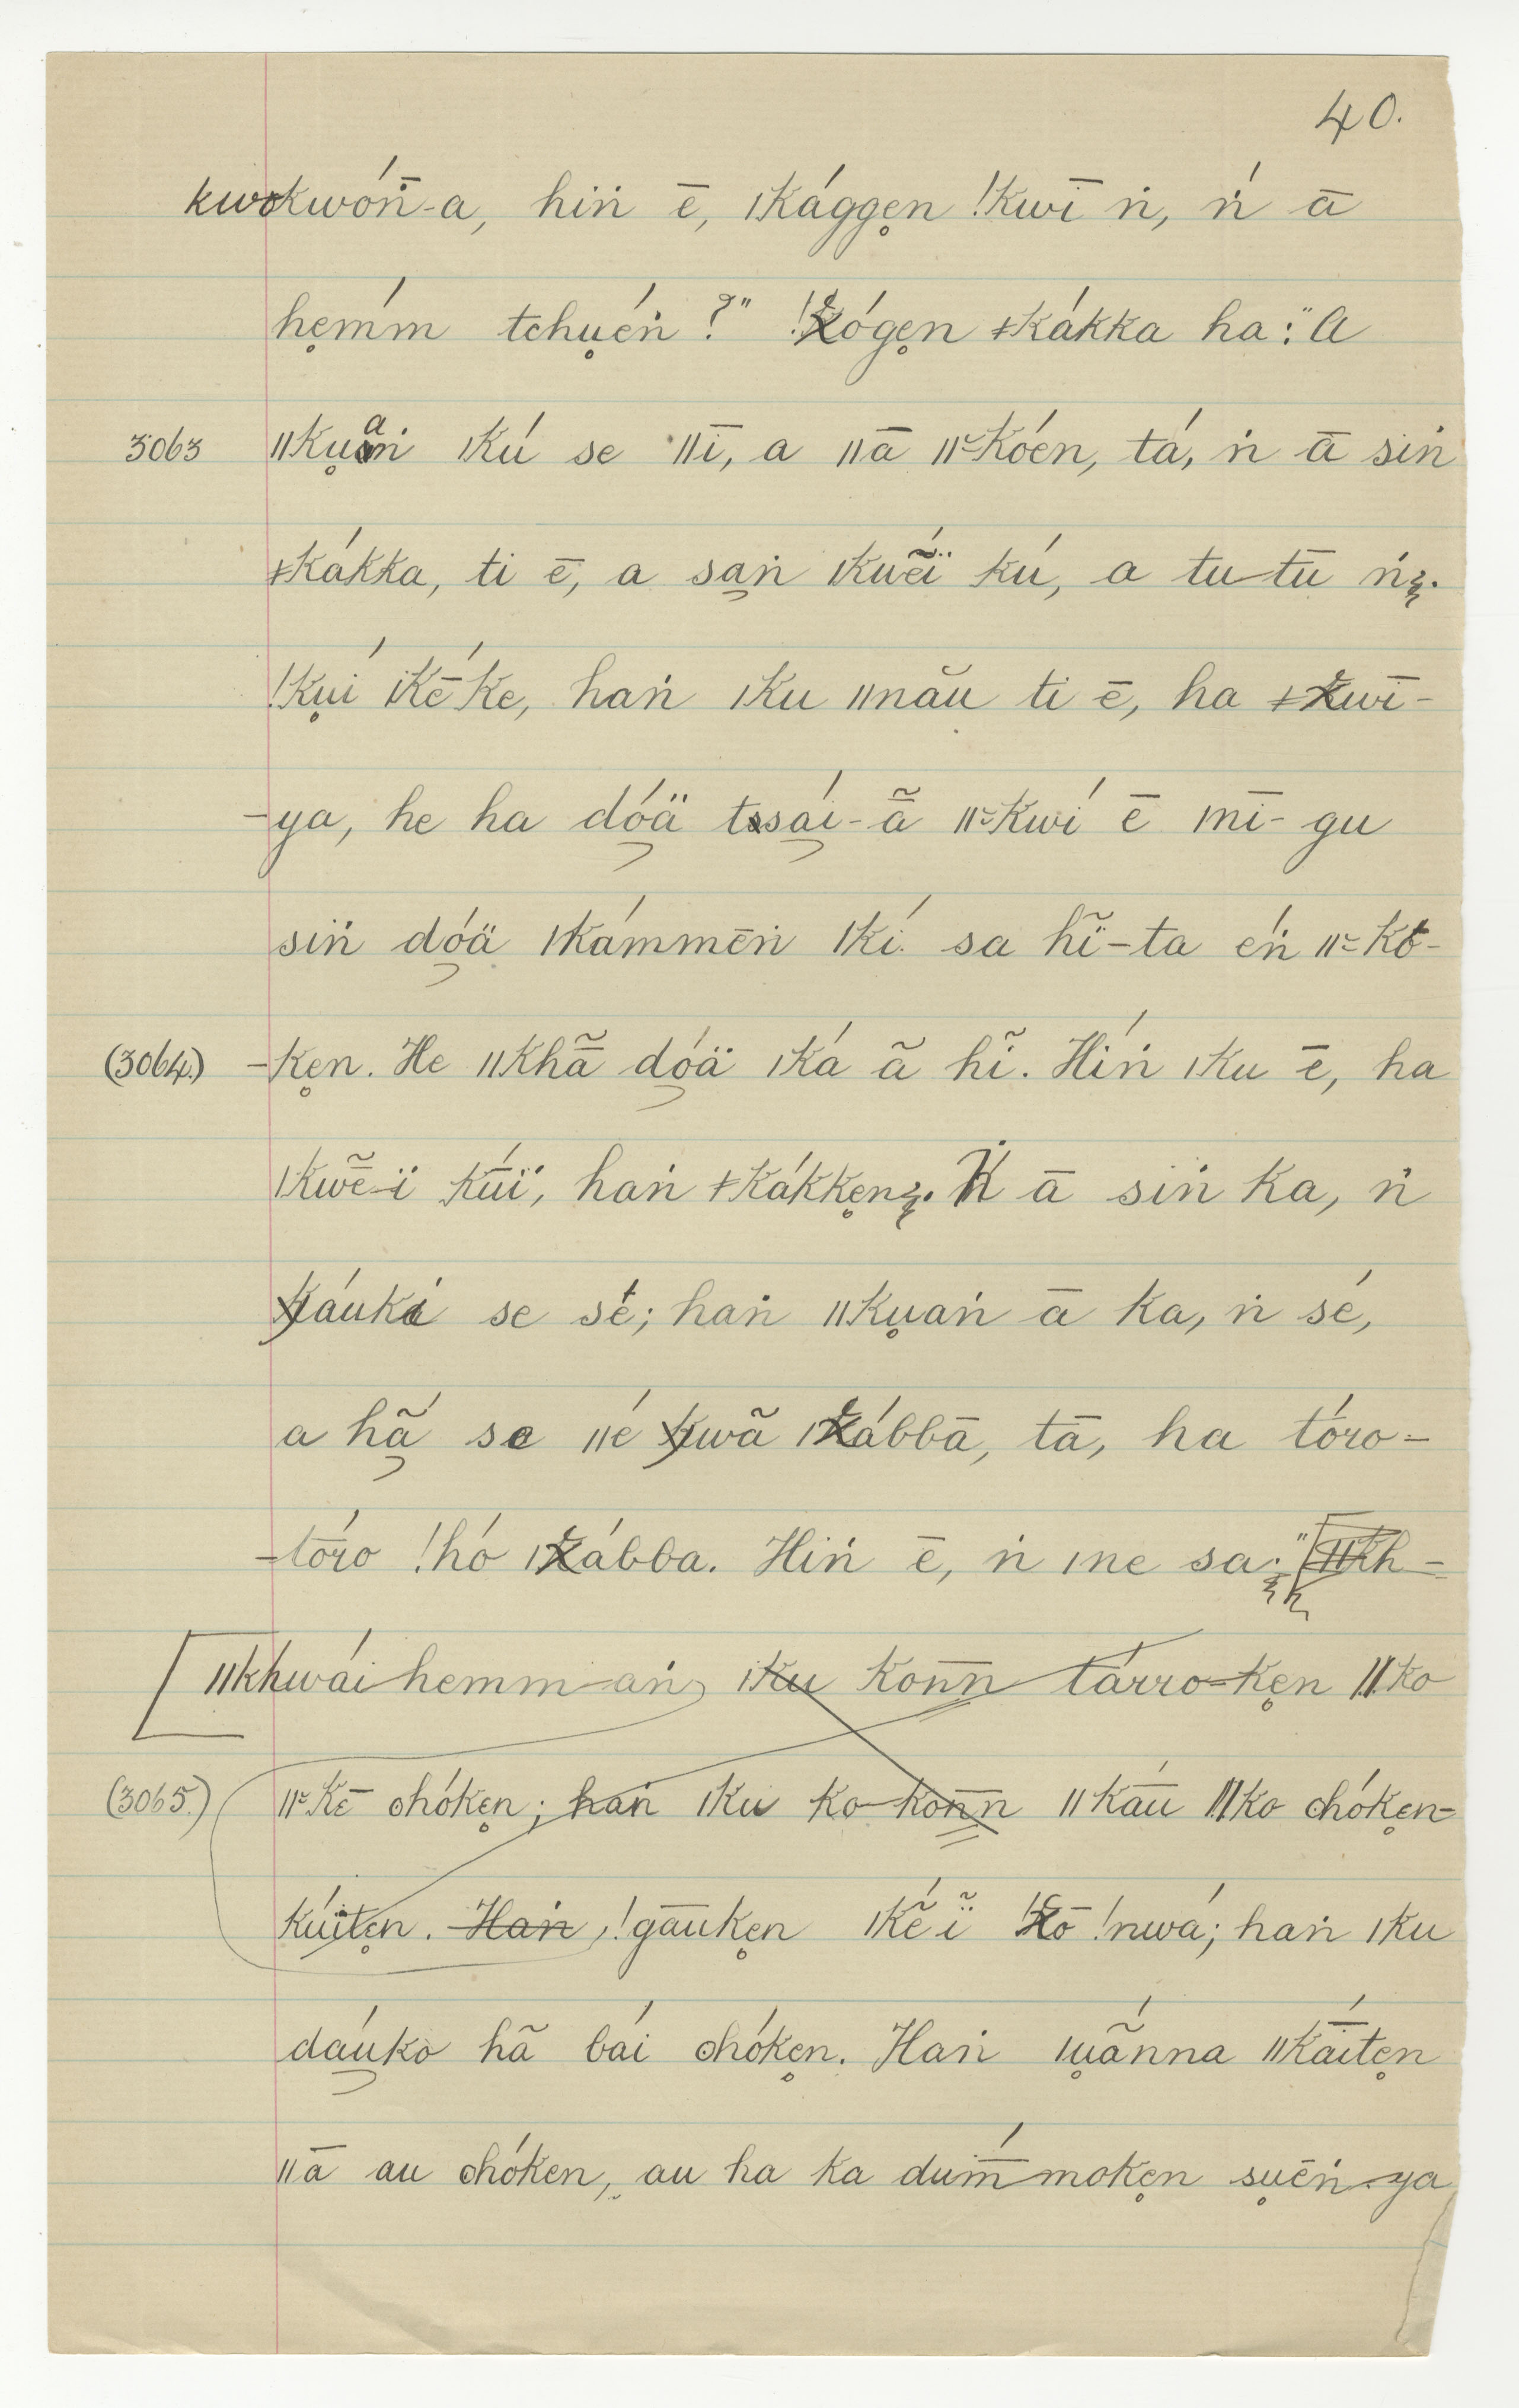 40.
kwokwóṅ̄-a, hiṅ ē, ǀkággẹn !kwī ṅ, ṅ́ ā
hẹḿm tchụéṅ?" !kógẹn ǂkákka ha: "A
3063 ǁkụaṅ ǀkú se ǁī, a ǁā ǁkóen, tá, ṅ ā siṅ
ǂkákka, ti ē, a sa̰ṅ ǀkuẽ́ï kú, a tu-tū ṅ́.
!kụí ǀkḗke, haṅ ǀku ǁnău ti ē, ha ǂkwī-
-ya, he ha dóä tssái-ã̄ ǁkwí ē ǀnī-gu
siṅ dóä ǀkámmēṅ ǀkí sa hĩ-ta éṅ ǁkó-
(3064.) -kẹn. He ǁkhã̄ dóä ǀká ã hĩ. Híṅ ǀku ē, ha
ǀkwẽ̄-ï kúï, haṅ ǂkákkẹn. Ṅ ā siṅ ka, ṅ
káuki se sé; haṅ ǁkụaṅ ā ka, ṅ sé,
a hã́ se ǁé kwã ǀkábbā, tā, ha tóro-
-tóro !hó ǀkábba. Hiṅ ē, ṅ ǀne sa: "ǁkh-
ǁkhwái hemm-aṅ ǀku kon̄n tárro-kẹn ǁko
(3065.) ǁkē ʘhókẹn; haṅ ǀku ko-kon̄n ǁkā́u ǁko ʘhókẹn-
kúïtẹn. Haṅ !gāukẹn ǀkẽ́ï !kō !nwá; haṅ ǀku
dáuko hã bái ʘhókẹn. Haṅ ǀụã́nna ǁkā́itẹn
ǁā au ʘhóken, au ha ka dum̄́-mokẹn sụēṅ-ya